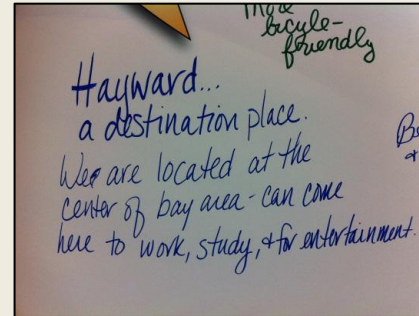 More
bicycle-
friendly
Hayward...
a destination place.
We are located at the
center of bay area - can come
here to work, study, + for entertainment.